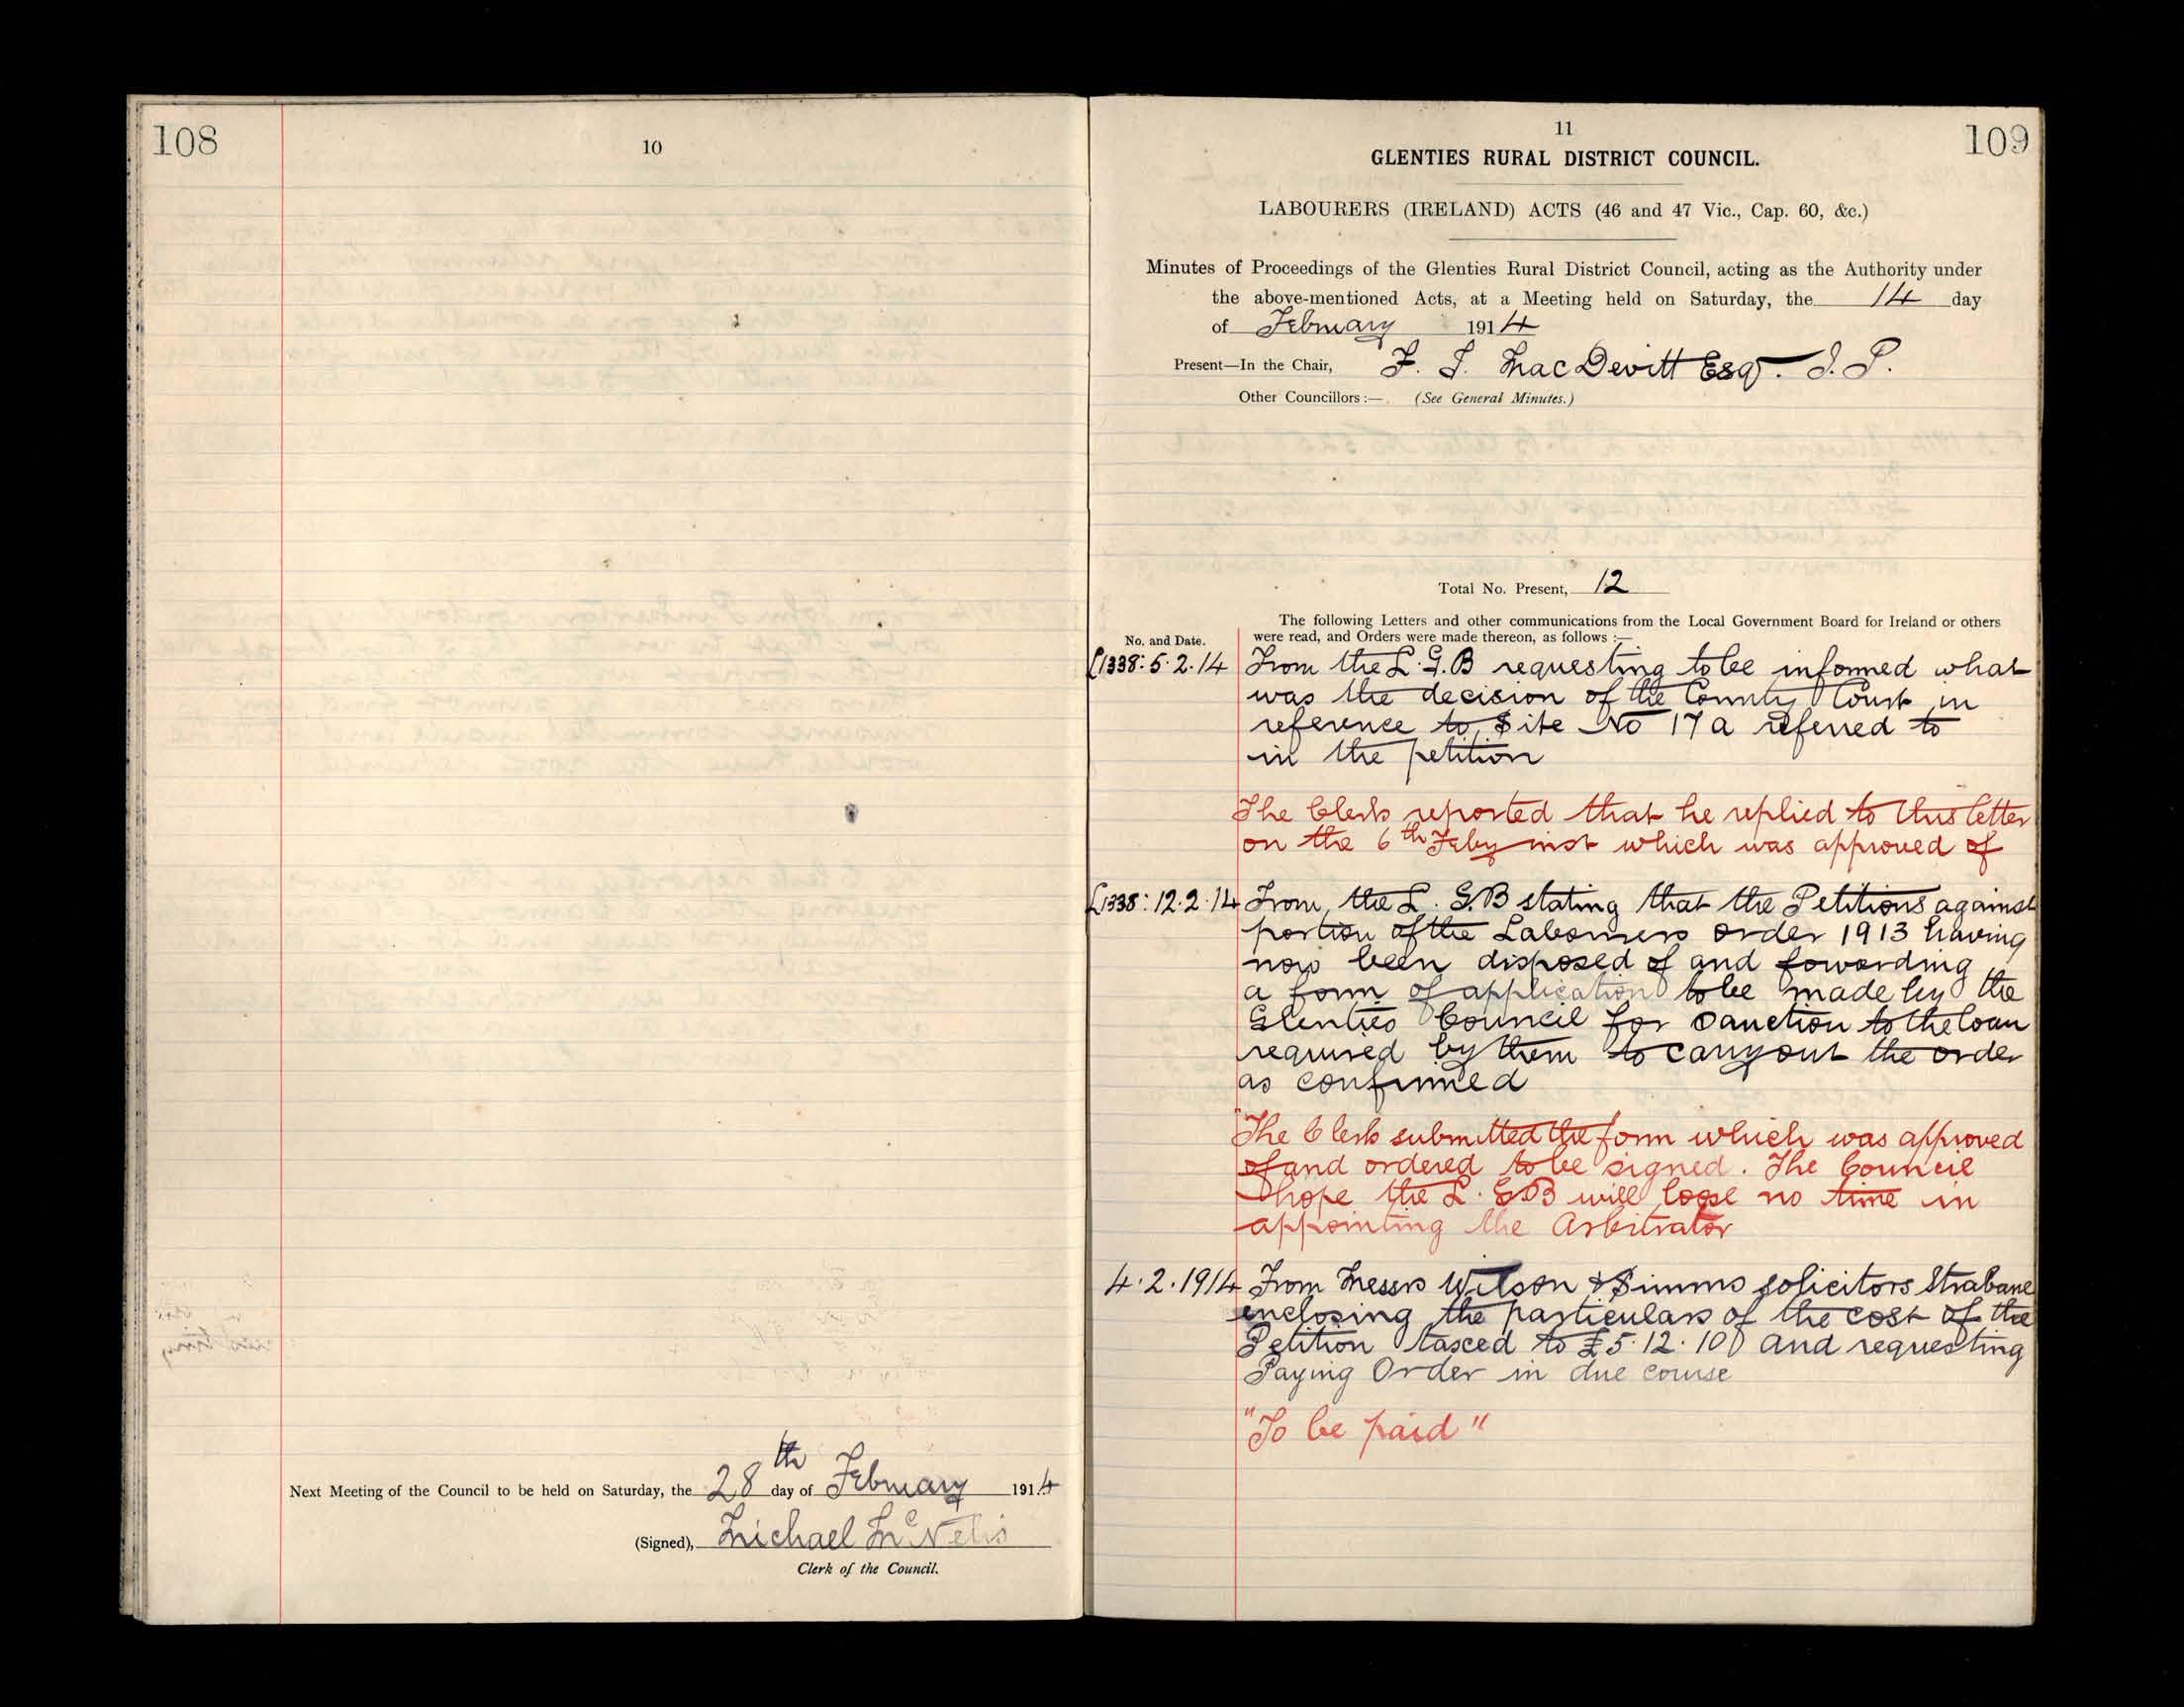 108
10
Next Meeting of the Council to be held on Saturday, the 28th day of February 1914
(Signed), Michael McNelis
Clerk of the Council.
11
109
GLENTIES RURAL DISTRICT COUNCIL.
LABOURERS (IRELAND) ACTS (46 and 47 Vic., Cap. 60, &c.)
Minutes of Proceedings of the Glenties Rural District Council, acting as the Authority under
the above-mentioned Acts, at a Meeting held on Saturday, the 14 day
of February 1914
Present—In the Chair, F. J. MacDevitt Esq. J. P.
Other Councillors :— (See General Minutes.)
Total No. Present, 12
The following Letters and other communications from the Local Government Board for Ireland or others
No. and Date. were read, and Orders were made thereon, as follows :—
L1338: 5.2.14 From the L.G.B requesting to be informed what
was the decision of the County Court in
reference to Site No 17a referred to
in the petition
The Clerk reported that he replied to this letter
on the 6th Feby inst which was approved of
L1338: 12.2.14 From the L.G.B stating that the Petitions against
portion of the Labourers order 1913 having
now been disposed of and fowarding
a form of application to be made by the
Glenties Council for Sanction to the loan
required by them to carry out the order
as confirmed
"The Clerk submitted the form which was approved
of and ordered to be signed. The Council
hope the L.G.B will loose no time in
appointing the Arbitrator
4.2.1914 From Messrs Wilson & Simms solicitors Strabane
enclosing the particulars of the cost of the
Petition taxed to £5.12.10 and requesting
Paying Order in due course
"To be paid"